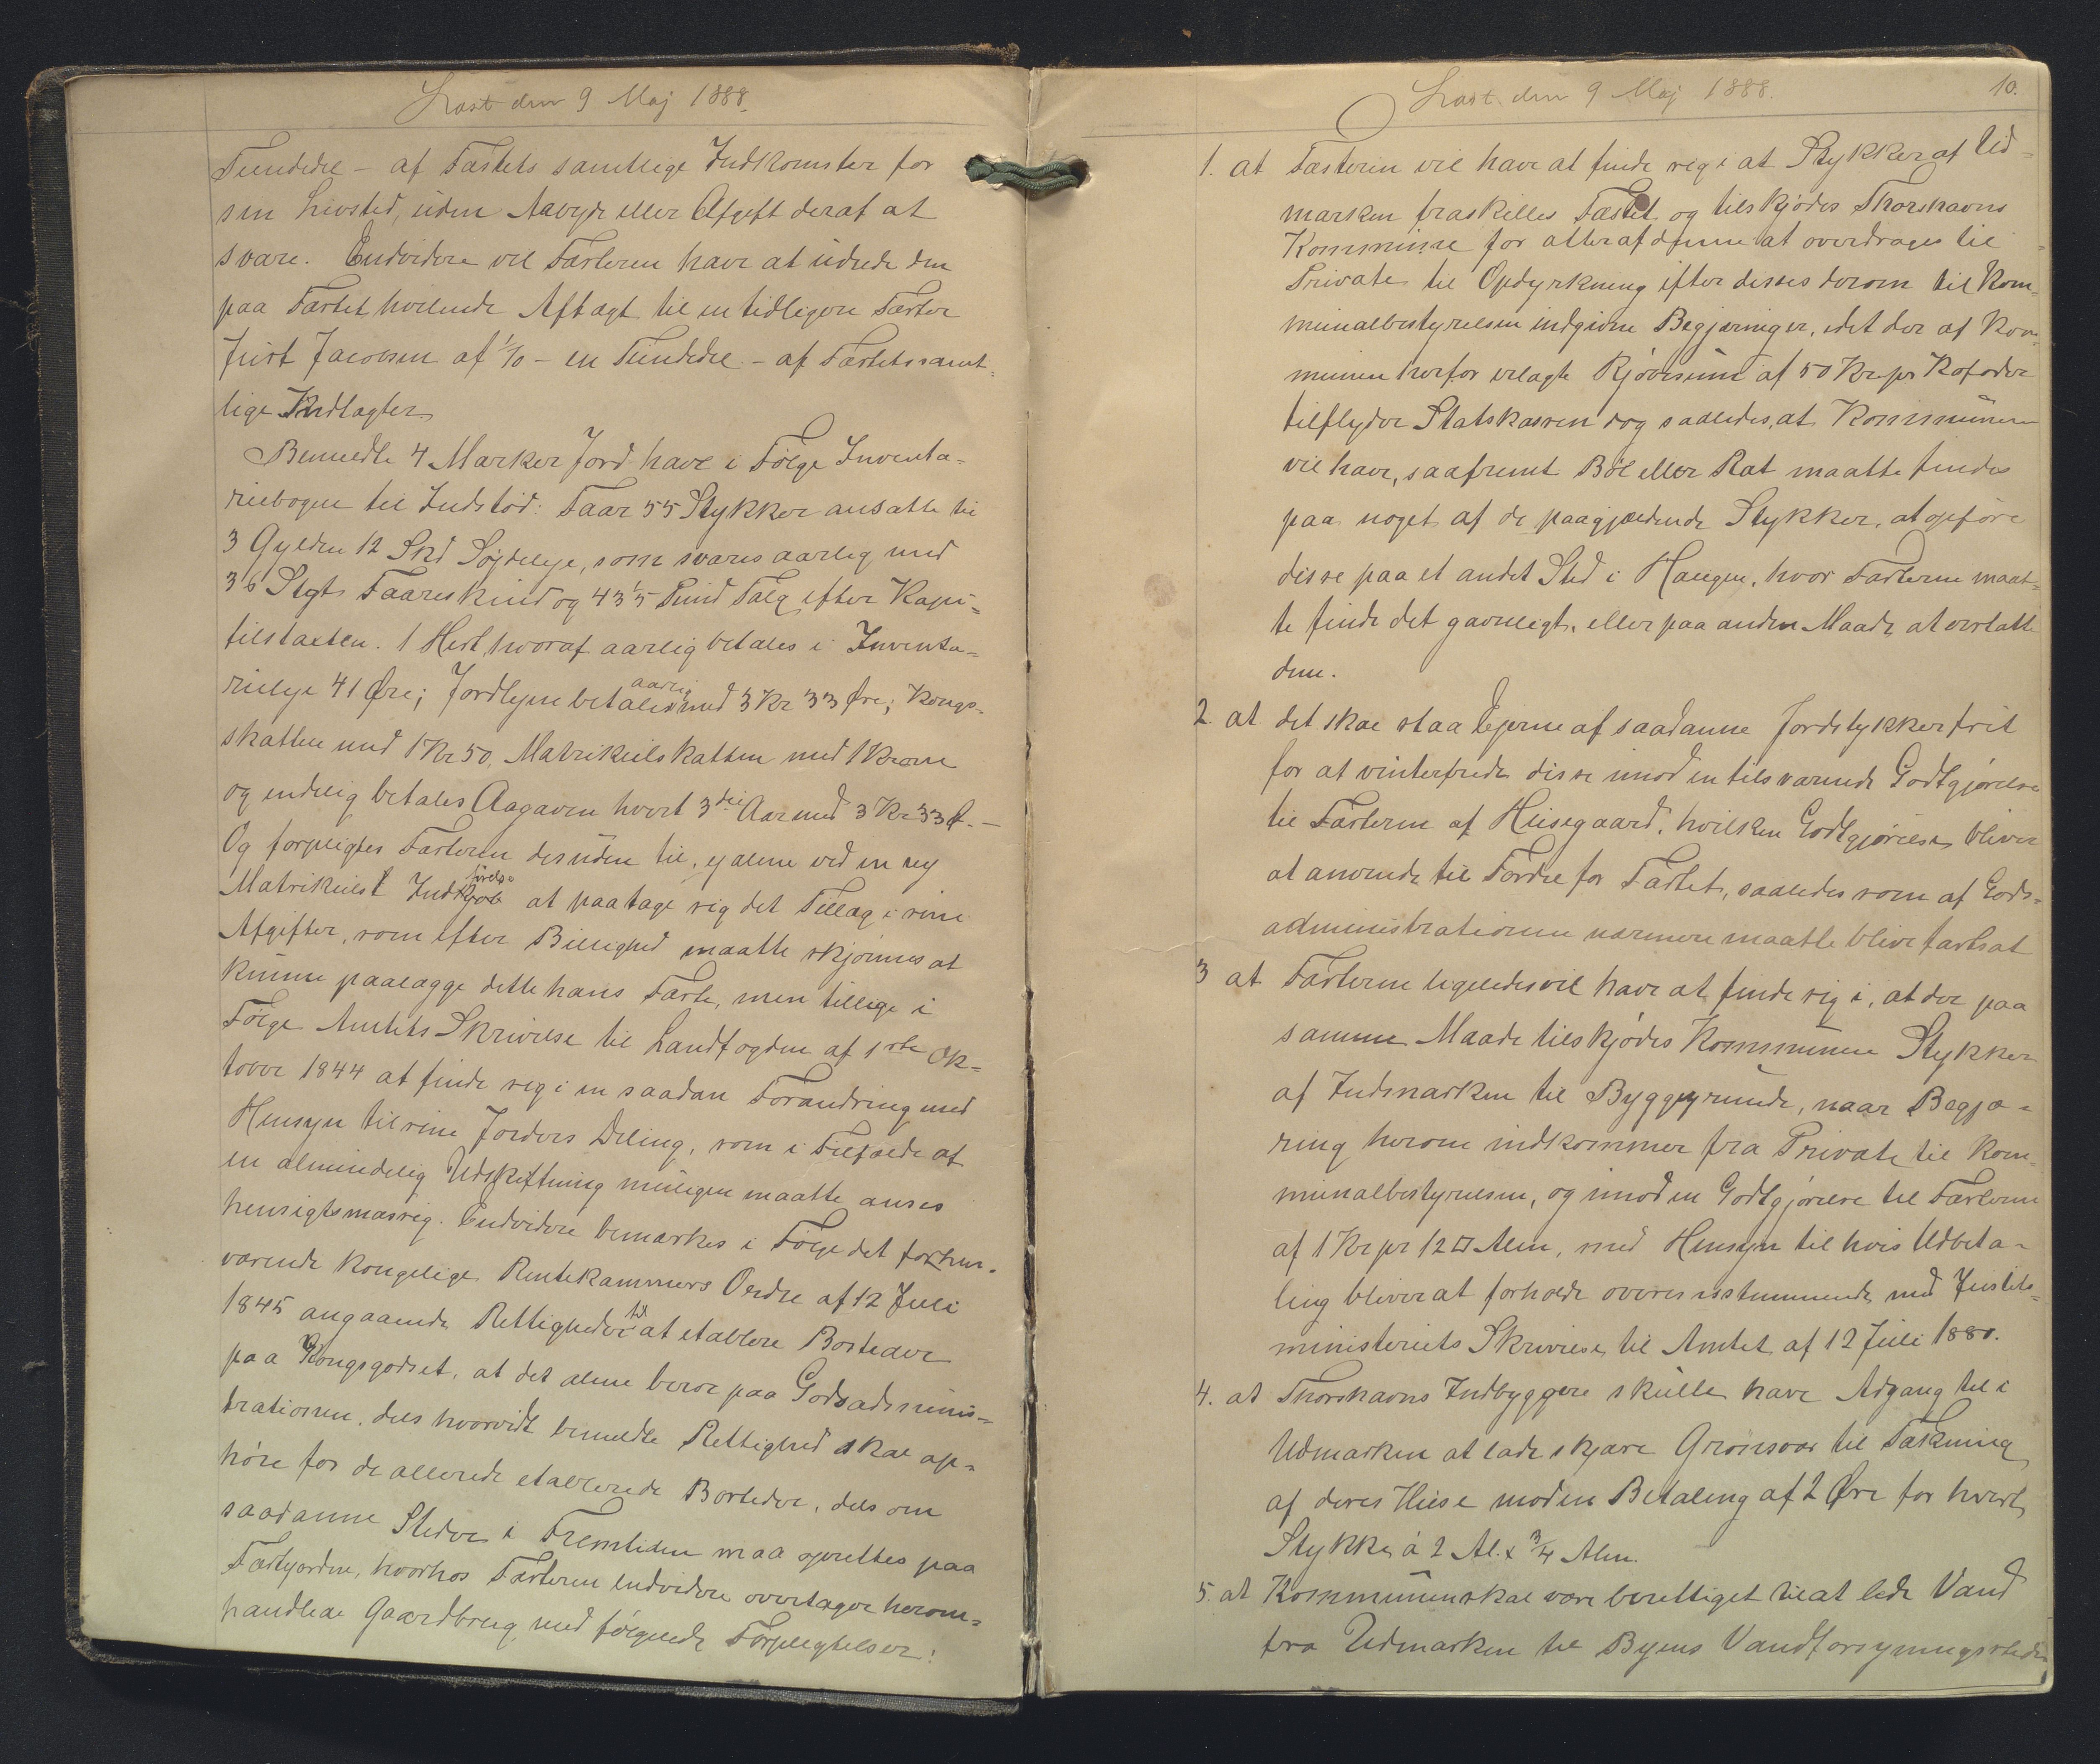 Læst den 9 Maj 1888.
Tiendedel – af Fæstets samtlige Indkomster for
sin Livstid, uden Aabyde eller Afgift deraf at
svare. Endvidere vil Fæsteren have at udrede den
paa Fæstet hvilende Aftægt til en tidligere Fæster
Just Jacobsen af 1/10 – en Tiendedel – af Fæstets samt-
lige Indtægter
Bemeldte 4 Marker Jord have i Følge Inventa-
riebogen til Indstød: Faar 55 Stykker ansatte til
3 Gylden 12 Skd Søjdeleje, som svares aarlig med
36 Slgt Faareskind og 43 1/5 Pund Talg efter Kapi-
tilstaxten. 1 Hest hvoraf aarlig betales i Inventa-
rieleje 41 Øre; Jordlejen betales aarlig med 3 Kr 33 Øre; Konge-
skatten med 1 Kr 50, Matrikulskatten med 1 Krone
og endelig betales Aagaven hvert 3die Aar med 3 Kr 33 Ø. –
Og forpligtes Fæsteren desuden til, ej alene ved en ny
Matrikuls Indførelse at paatage sig det Tillæg i sine
Afgifter, som efter Billighed maatte skjønnes at
kunne paalægge dette hans Fæste, men tillige i
Følge Amtets Skrivelse til Landfogden af 1ste Ok-
tober 1844 at finde sig i en saadan Forandring med
Hensyn til sine Jorders Deling, som i Tilfælde af
en almindelig Udskiftning muligen maatte anses
hensigtsmæssig. Endvidere bemærkes i Følge det forhen-
værende kongelige Rentekammers Ordre af 12 Juli
1845 angaaende Rettigheder til at etablere Bosteder
paa Kongsgodset, at det alene beror paa Godsadminis-
trationen, dels hvorvidt bemeldte Rettighed skal op-
høre for de allerede etablerede Bosteder, dels om
saadanne Steder i Fremtiden maa oprettes paa
Fæstejorden, hvorhos Fæsteren endvidere overtager herom-
handlede Gaardbrug med følgende Forpligtelser:
Læst den 9 Maj 1888.
10.
1. at Fæsteren vil have at finde sig i at Stykker af Ud-
marken fraskilles Fæstet og tilskjødes Thorshavns
Kommune for atter af denne at overdrages til
Private til Opdyrkning efter disses derom til Kom-
munalbestyrelsen indgivne Begjæringer, idet der af Kom-
munen herfor erlagte Kjøbesum af 50 Kr. pr Kofoder
tilflyder Statskassen dog saaledes, at Kommunen
vil have, saafremt Bøl eller Rat maatte findes
paa noget af de paagjældende Stykker, at opføre
disse paa et andet Sted i Haugen, hvor Fæsteren maat-
te finde det gavnligt, eller paa anden Maade at erstatte
dem.
2. at det skal staa Ejerne af saadanne Jordstykker frit
for at vinterfrede disse imod en tilsvarende Godtgjørelse
til Fæsteren af Husegaard, hvilken Godtgjørelse bliver
at anvende til Fordel for Fæstet, saaledes som af Gods-
administrationen nærmere maatte blive fastsat
3 at Fæsteren ligeledes vil have at finde sig i, at der paa
samme Maade tilskjødes Kommunen Stykker
af Indmarken til Byggegrunde, naar Begjæ-
ring herom indkommer fra Private til Kom-
munalbestyrelsen, og imod en Godtgjørelse til Fæsteren
af 1 Kr pr 12 □ Alen, med Hensyn til hvis Udbeta-
ling bliver at forholde overensstemmende med Justits-
ministeriets Skrivelse til Amtet af 12 Juli 1880.
4. at Thorshavns Indbyggere skulle have Adgang til i
Udmarken at lade skjære Grønsvær til Tækning
af deres Huse mod en Betaling af 2 Øre for hvert
Stykke à 2 Al. x 3/4 Alen.
5. at Kommunen skal være berettiget til at lede Vand
fra Udmarken til Byens Vandforsyningssteder